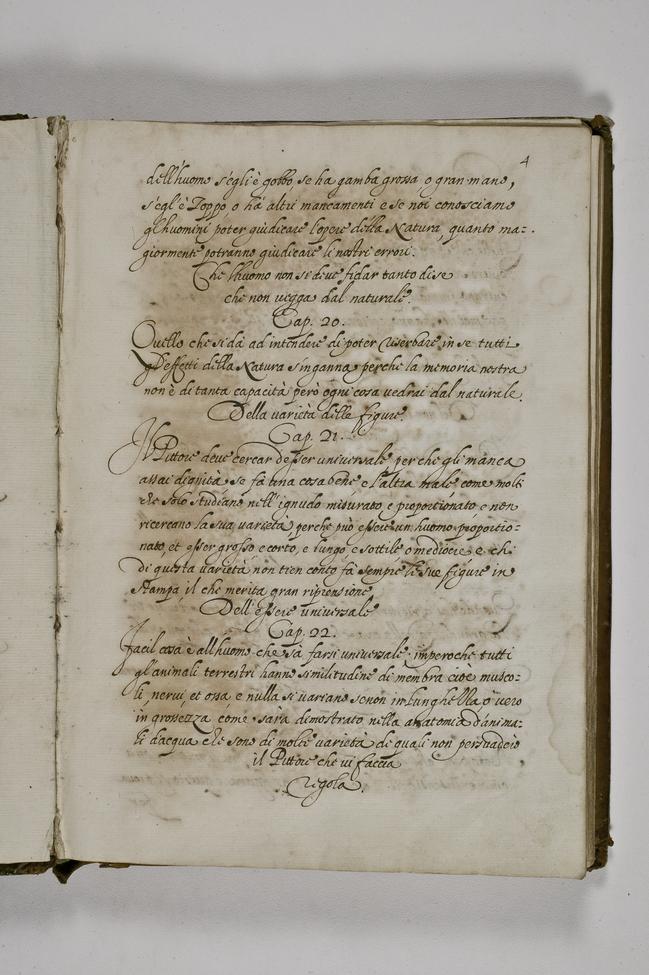 4
dell'huomo s'egli è gobbo se ha gamba grossa, o gran mano,
s'egl'è Zoppo o ha altri mancamenti e se noi conosciamo
gl'huomini poter giudicare l'opere della Natura, quanto ma-
giormente potranno giudicare li nostri errori.
Che l'huomo non si deve fidar tanto di se
che non vegga dal naturale.
Cap. 20.
Quello che si dà ad intendere di poter riserbare in se tutti
gl'effetti della Natura s'inganna perche la memoria nostra
non è di tanta capacità però ogni cosa vedrai dal naturale.
Della varietà delle figure.
Cap. 21.
Il Pittore deve cercar d'esser universale perche gli manca
assai dignità se fà una cosa bene e l'altra male come molti
che solo studiano nell'ignudo misurato e proportionato, e non
ricercano la sua varietà, perche può essere un huomo proportio-
nato, et esser grosso e corto, e lungo, e sottile o mediocre e chi
di questa varietà non tien conto fà sempre le sue figure in
stampa, il che merita gran riprensione
Dell'essere universale
Cap. 22.
Facil cosa è all'huomo che sà farsi universale, imperochè tutti
gl'animali terrestri hanno similitudine di membra cioè musco-
li, nervi, et ossa e nulla si variano se non in lunghezza, o vero
in grossezza come sarà dimostrato nella anatomia d'anima-
li d'acqua che sono di molte varietà di quali non persuaderò
il Pittore che vi faccia
regola.